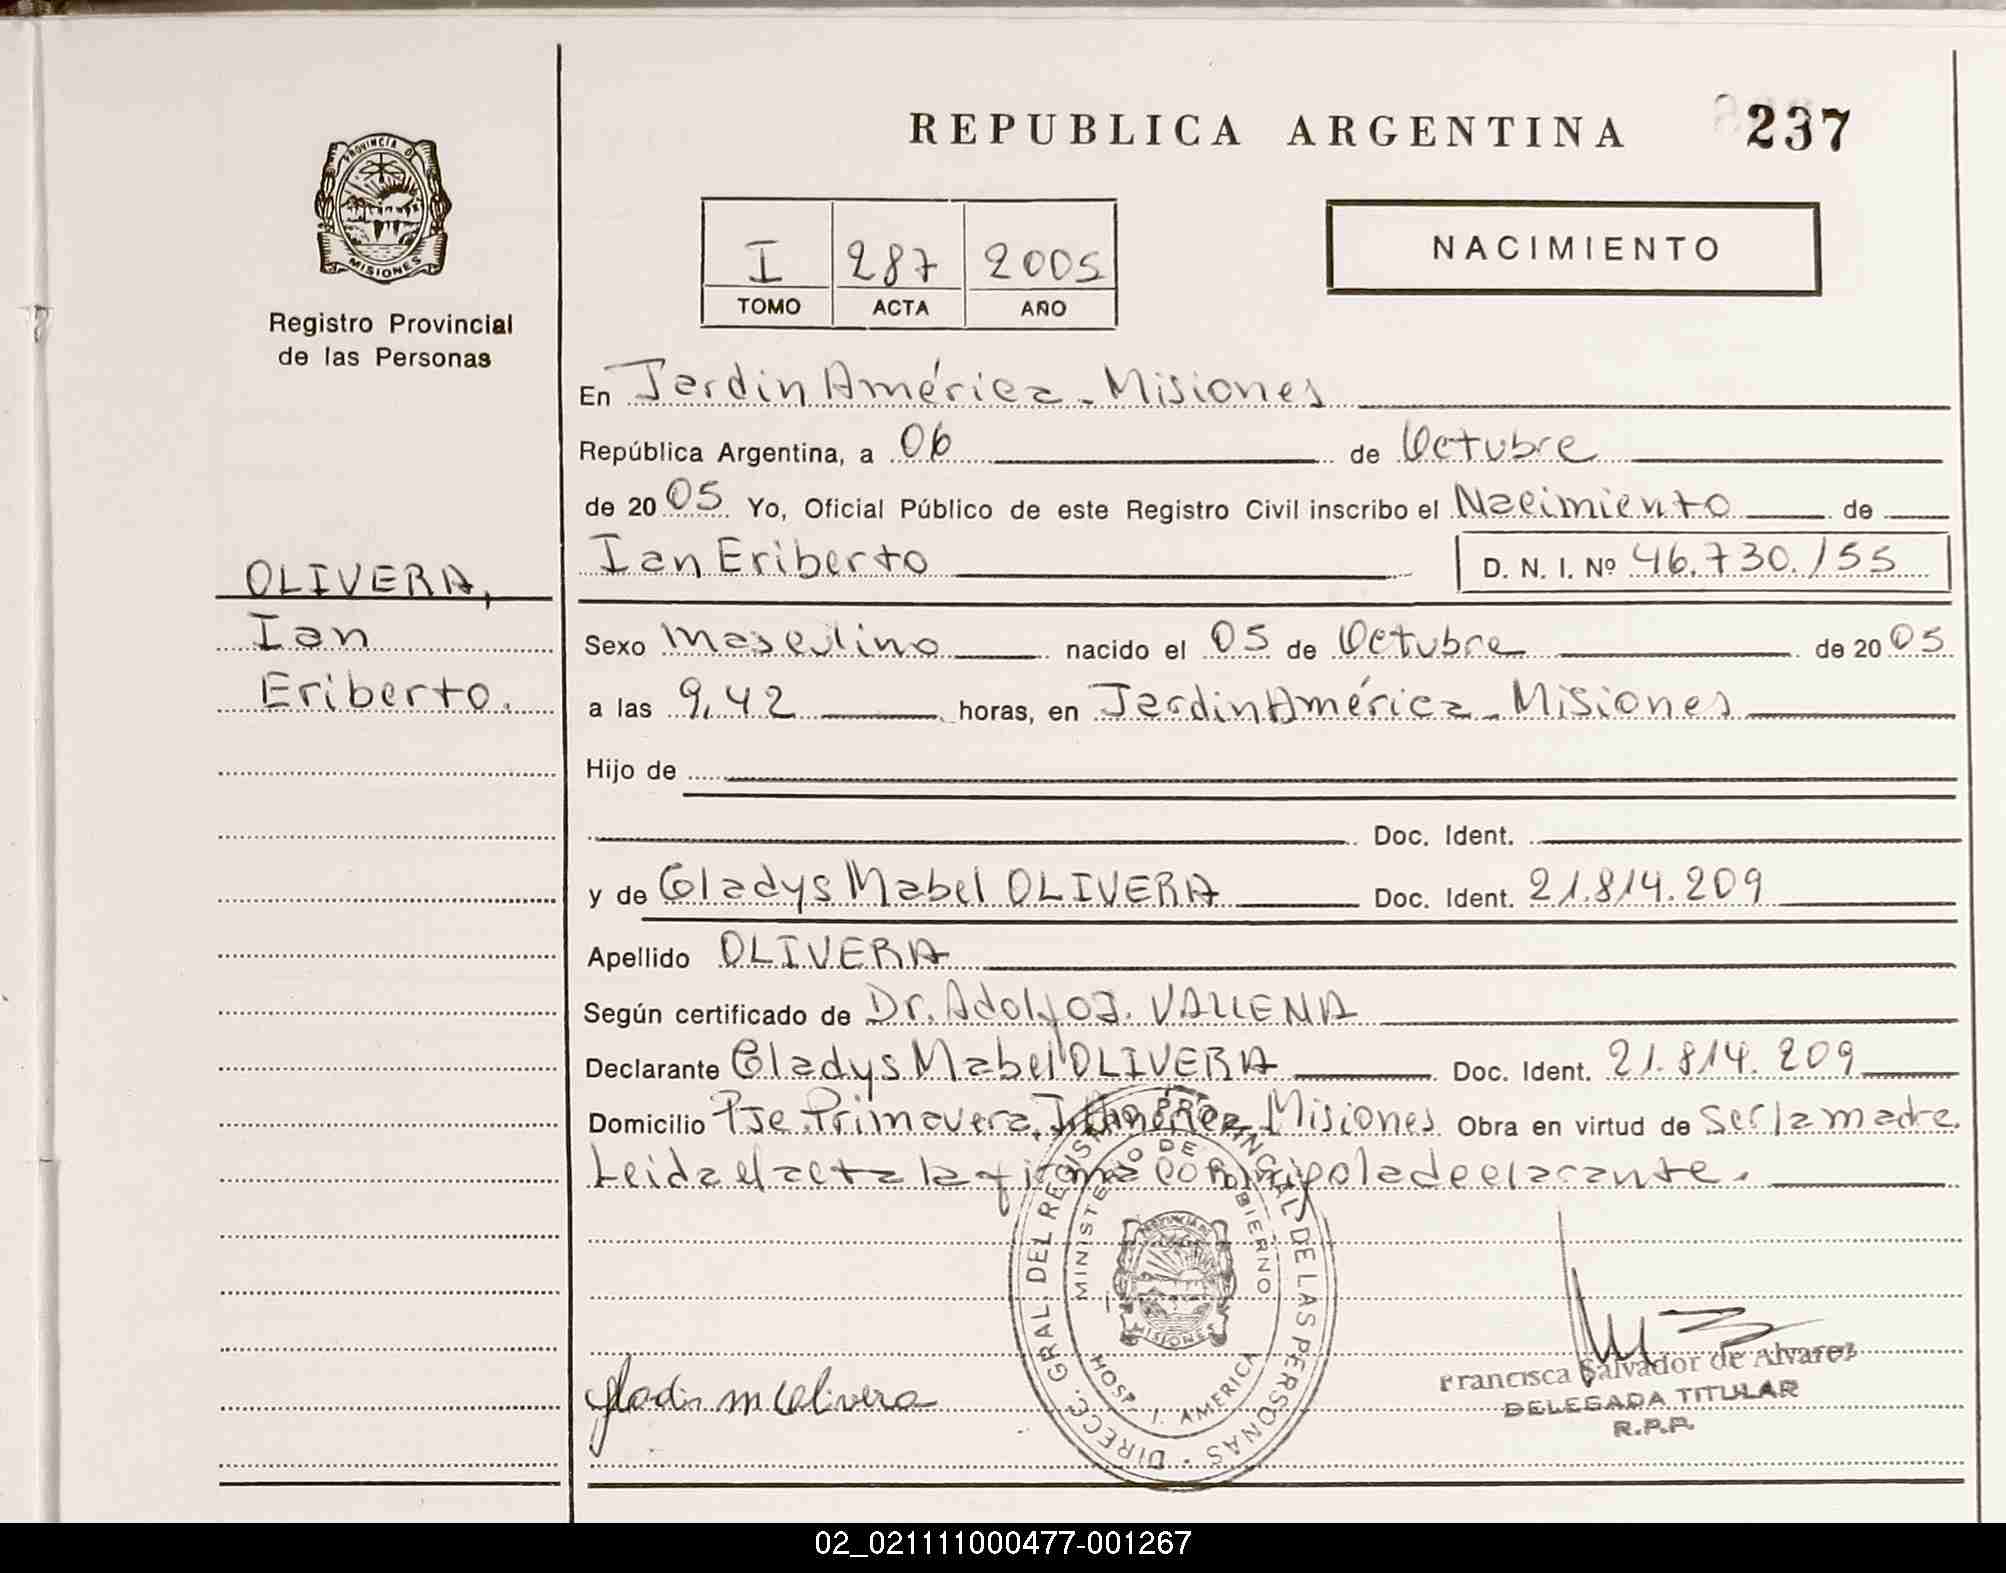 REPUBLICA ARGENTINA 237
PROVINCIA DE
MISIONES
Registro Provincial
de las Personas
I 287 2005
TOMO ACTA AÑO
NACIMIENTO
En Jardin América - Misiones
República Argentina, a 06 de Octubre
de 2005 Yo, Oficial Público de este Registro Civil inscribo el Nacimiento de
Ian Eriberto D. N. I. Nº 46.730.155
OLIVERA,
Ian
Eriberto.
Sexo Masculino nacido el 05 de Octubre de 2005
a las 9,42 horas, en Jardin América - Misiones
Hijo de
Doc. Ident.
y de Gladys Mabel OLIVERA Doc. Ident. 21.814.209
Apellido OLIVERA
Según certificado de Dr. Adolfo J.
Declarante Gladys Mabel OLIVERA Doc. Ident. 21.814.209
Domicilio Pje. Primavera, América Misiones Obra en virtud de ser la madre.
Leida el acta la firma conmigo la declarante.
DIRECC. GRAL. DEL REGISTRO PROVINCIAL DE LAS PERSONAS
MINISTERIO DE GOBIERNO
PROVINCIA DE
MISIONES
HOSP. J. AMERICA
Gladis M Olivera
Francisca Salvador de Alvarez
DELEGADA TITULAR
R.P.P.
02_021111000477-001267